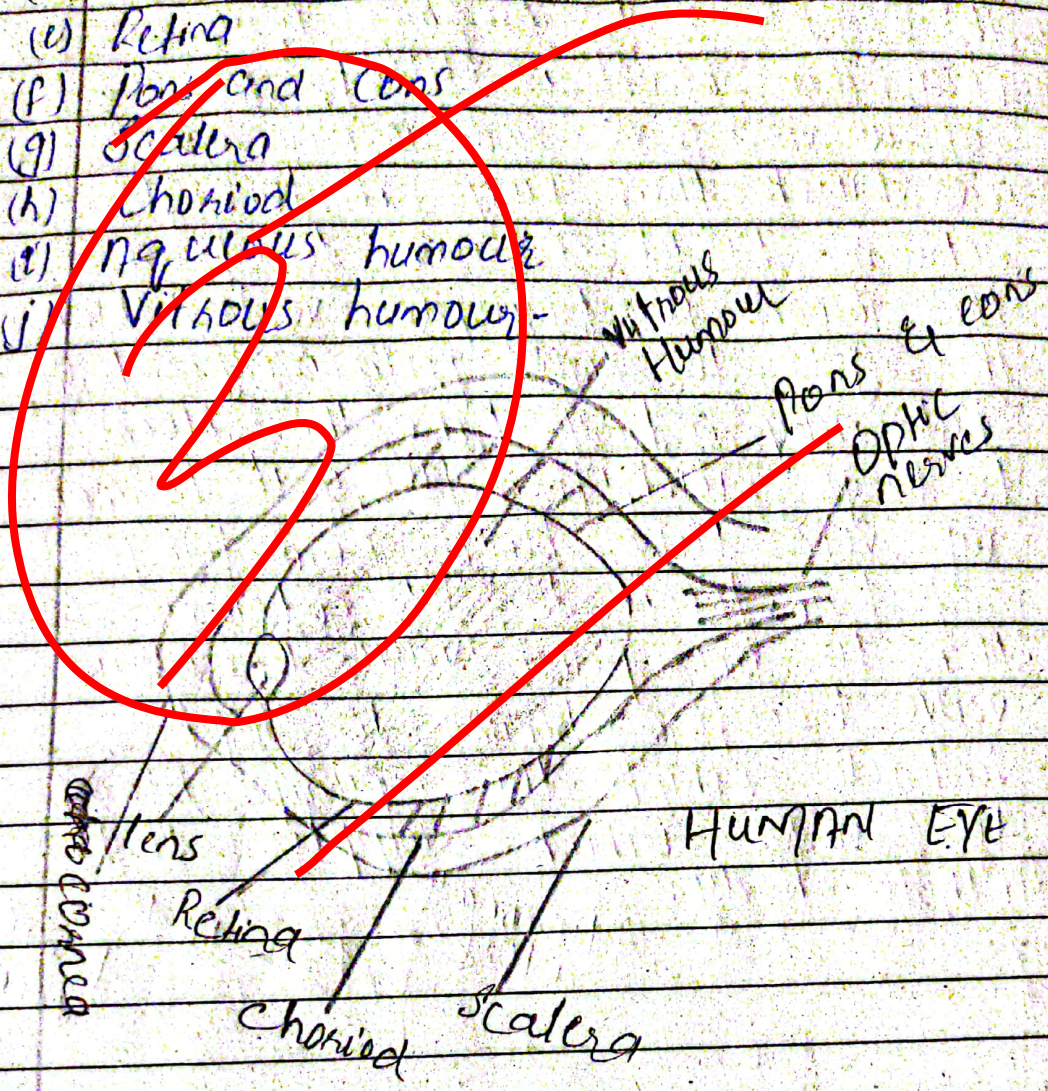 (e) Retina
(f) Pons and Cons
(g) Scalera
(h) Choriod
(i) Aqueous humour
(j) Vithous humour-
Vithous
Humour
Pons & cons
Optic
nerves
lens
HUMAN EYE
Cornea
Retina
Choriod
Scalera
3